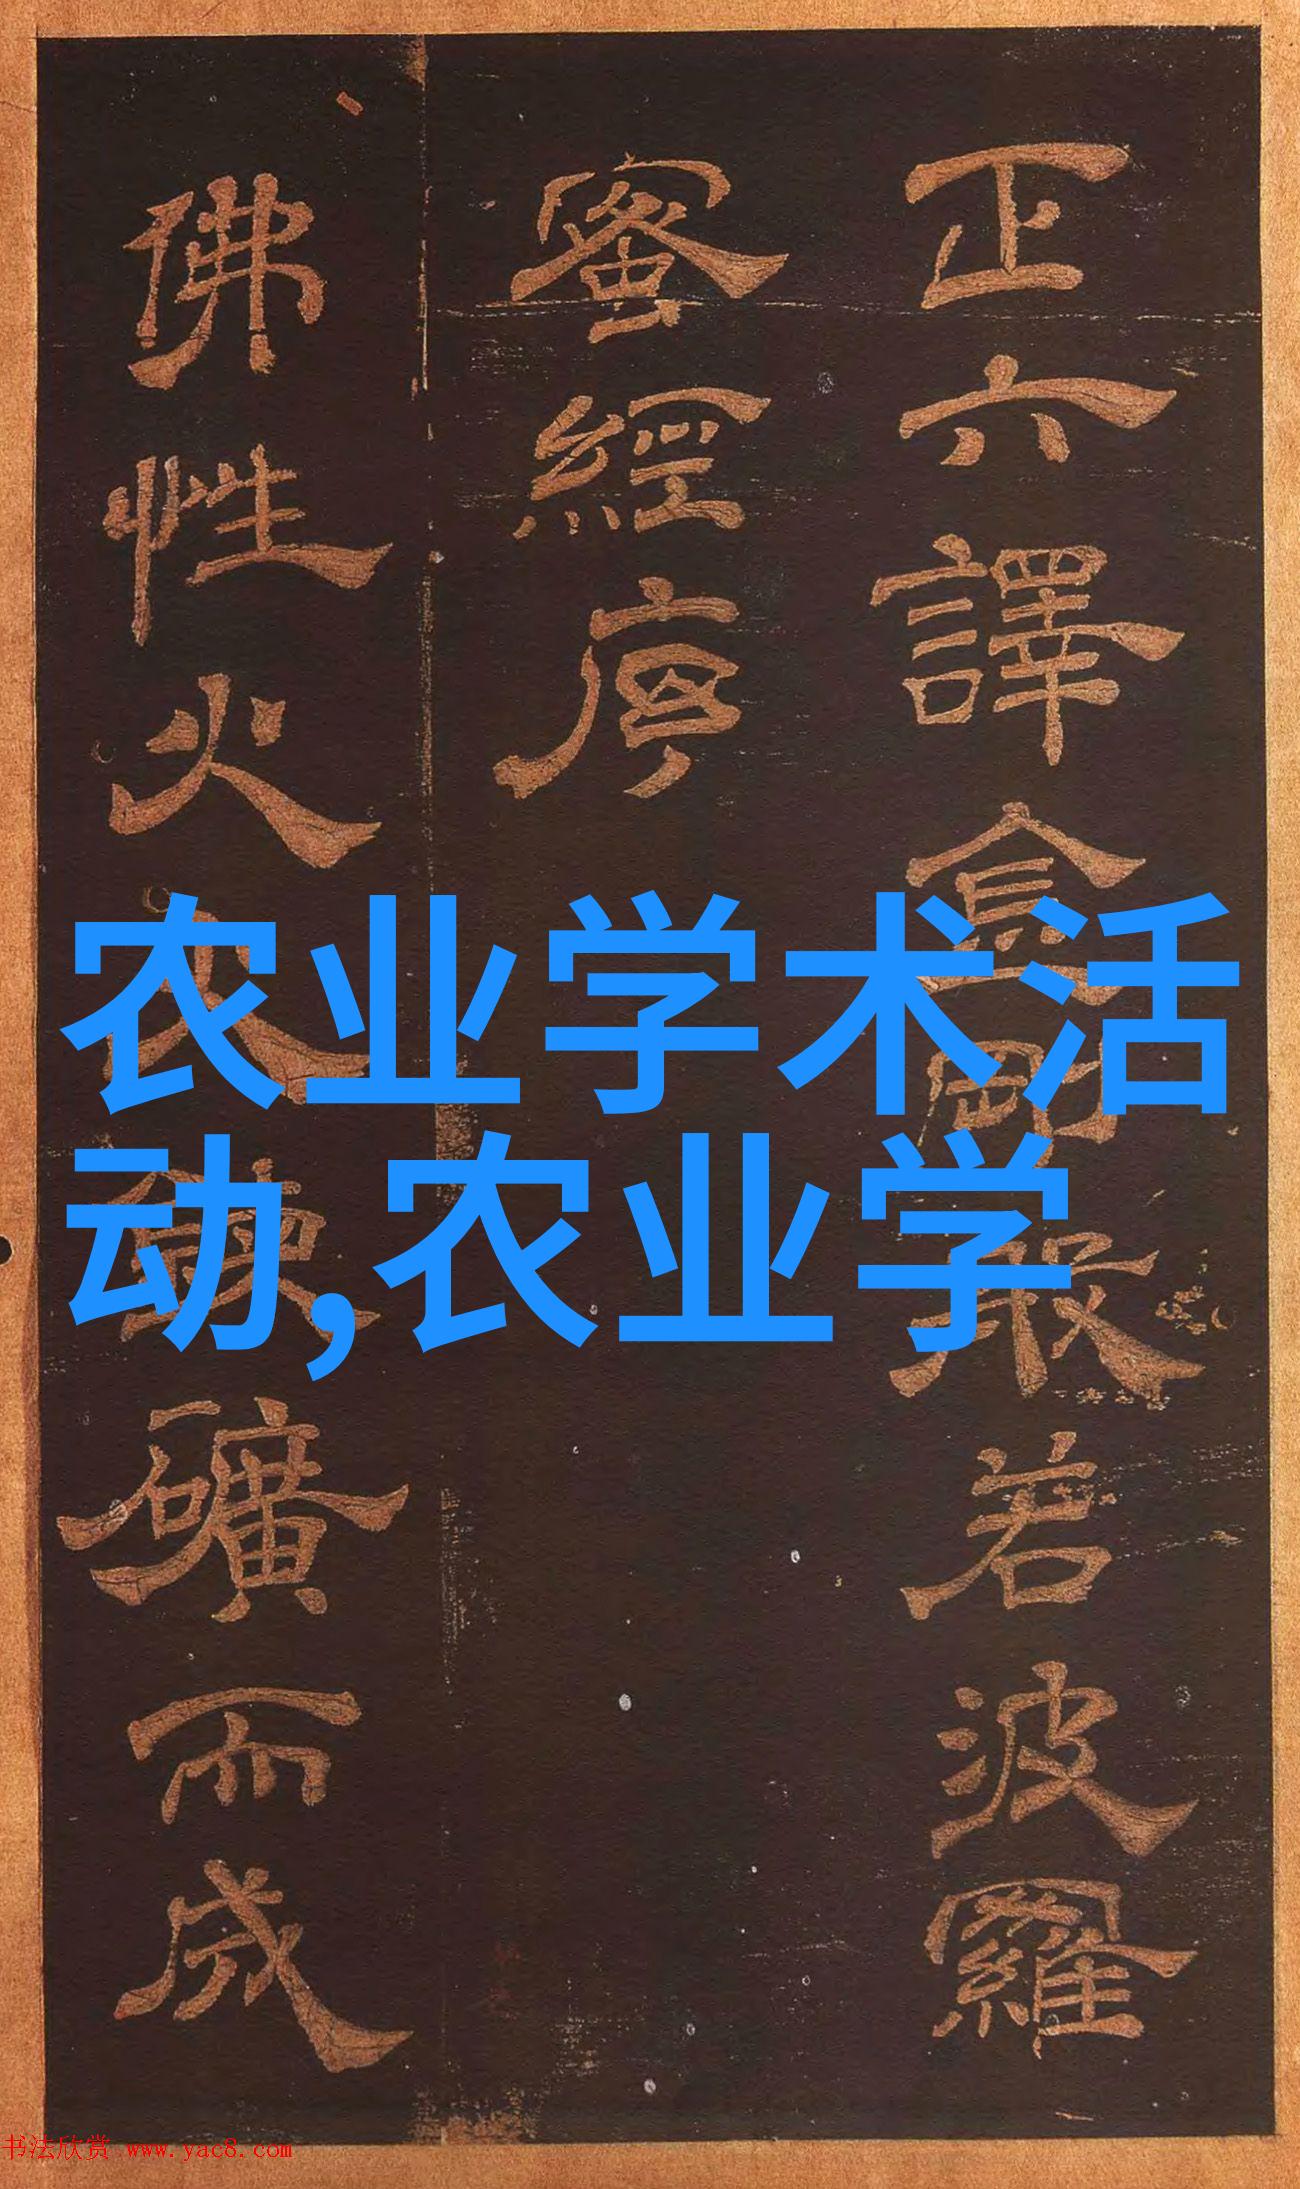 正六譯金剛般若波羅
蜜經序
佛性火
礦而成
农业学术活
动,农业学
书法欣赏 www.yac8.com